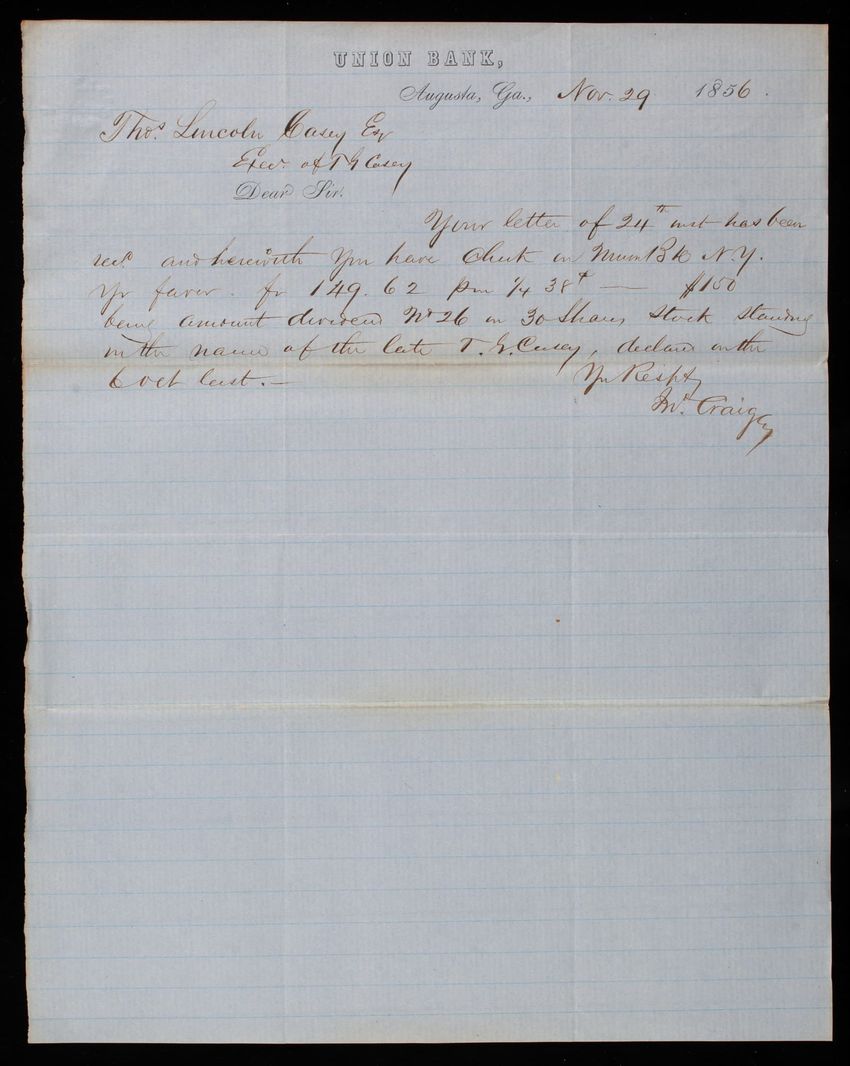 UNION BANK,
Augusta, Ga., Nov. 29 1856.
Thos. Lincoln Casey Esq
Exec. of T G Casey
Dear Sir.
Your letter of 24th inst has been
recd. and herewith you have check on Bk N.Y.
Yr favor. for 149.62 Prm ¼ 38c — $150
being amount dividend No 26 on 30 Shares Stock standing
in the name of the late T. G. Casey, declared on the
6 Oct last. —
Yr Respty
Craig